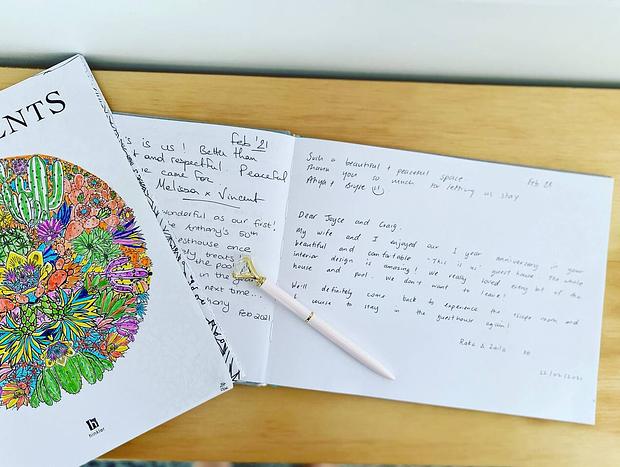 ENTS
hinkler
Feb '21
is is us! Better than
t and respectful. Peaceful
care for.
Melissa x Vincent
wonderful as our first!
Anthony's 50th
esthouse once
treats
the pool
in the
next time...
hony
Feb 2021
Such a beautiful + peaceful space
Feb 21
Thank you so much for letting us stay
Dear Joyce and Craig.
My wife and I enjoyed our 1 year anniversary in your
beautiful and comfortable "This is us" guest house. The whole
interior design is amazing! We really loved every bit of the
house and pool. We don't want to leave!
We'll definitely come back to experience the escape room and
of course to stay in the guesthouse again!